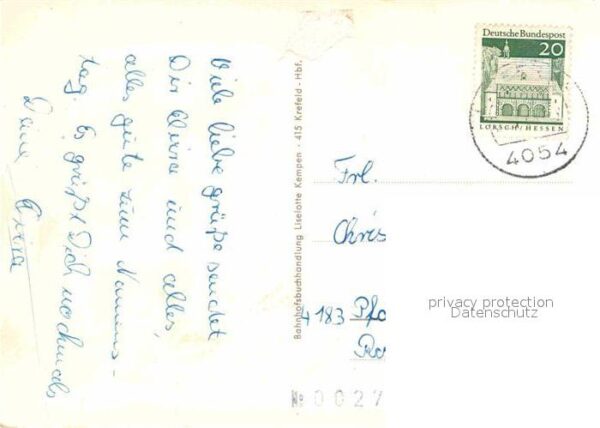 Viele liebe grüße sendet
Dir und alles,
alles gute zum Namens-
tag. Es grüßt Dich nochmals
Deine
Bahnhofsbuchhandlung Liselotte Kempen · 415 Krefeld - Hbf.
Deutsche Bundespost
20
LORSCH/HESSEN
4054
Frl.
Chris
4183 Pfa
privacy protection
Datenschutz
№ 0027